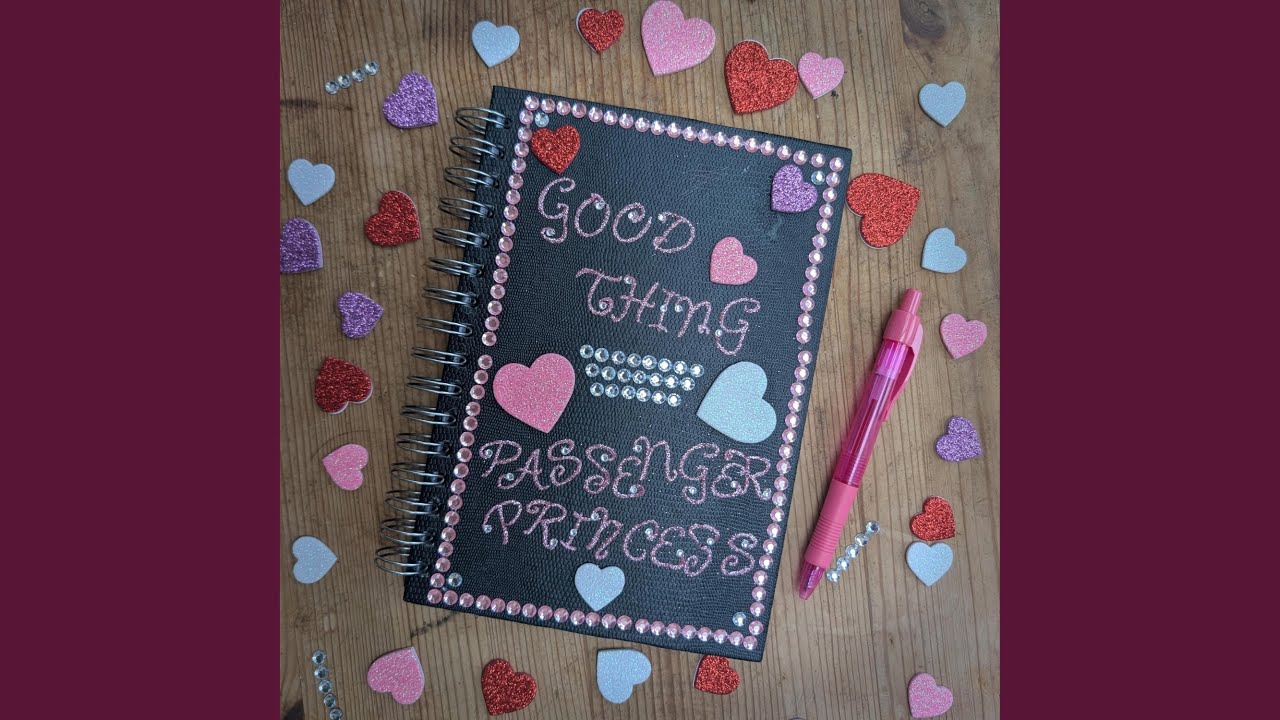 GOOD
THING
PASSENGER
PRINCESS